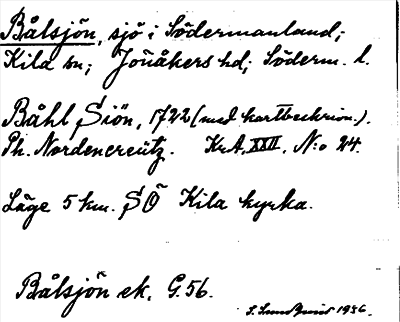 Bålsjön, sjö i Södermanland;
Kila sn; Jönåkers hd; Söderm. l.
Båhl Siön, 1722 (med kartbeskrivn.).
Ph. Nordencreütz. KrA, XXII, N:o 24.
Läge 5 km. SÖ Kila kyrka.
Bålsjön ek. G.56.
1936.